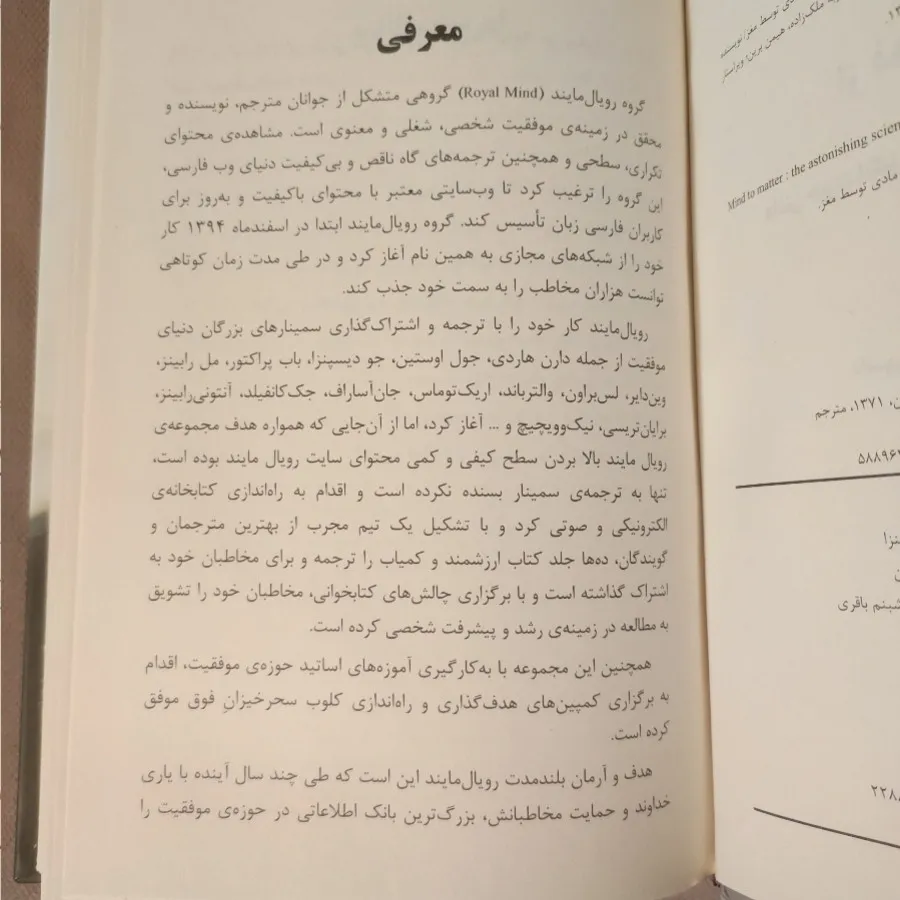 معرفی
گروه رویال‌مایند (Royal Mind) گروهی متشکل از جوانان مترجم، نویسنده و
محقق در زمینه‌ی موفقیت شخصی، شغلی و معنوی است. مشاهده‌ی محتوای
تکراری، سطحی و همچنین ترجمه‌های گاه ناقص و بی‌کیفیت دنیای وب فارسی،
این گروه را ترغیب کرد تا وب‌سایتی معتبر با محتوای باکیفیت و به‌روز برای
کاربران فارسی زبان تأسیس کند. گروه رویال‌مایند ابتدا در اسفندماه ۱۳۹۴ کار
خود را از شبکه‌های مجازی به همین نام آغاز کرد و در طی مدت زمان کوتاهی
توانست هزاران مخاطب را به سمت خود جذب کند.
رویال‌مایند کار خود را با ترجمه و اشتراک‌گذاری سمینارهای بزرگان دنیای
موفقیت از جمله دارن هاردی، جول اوستین، جو دیسپنزا، باب پراکتور، مل رابینز،
وین‌دایر، لس‌براون، والترباند، اریک‌توماس، جان‌آساراف، جک‌کانفیلد، آنتونی‌رابینز،
برایان‌تریسی، نیک‌وویچیچ و ... آغاز کرد، اما از آن‌جایی که همواره هدف مجموعه‌ی
رویال مایند بالا بردن سطح کیفی و کمی محتوای سایت رویال مایند بوده است،
تنها به ترجمه‌ی سمینار بسنده نکرده است و اقدام به راه‌اندازی کتابخانه‌ی
الکترونیکی و صوتی کرد و با تشکیل یک تیم مجرب از بهترین مترجمان و
گویندگان، ده‌ها جلد کتاب ارزشمند و کمیاب را ترجمه و برای مخاطبان خود به
اشتراک گذاشته است و با برگزاری چالش‌های کتابخوانی، مخاطبان خود را تشویق
به مطالعه در زمینه‌ی رشد و پیشرفت شخصی کرده است.
همچنین این مجموعه با به‌کارگیری آموزه‌های اساتید حوزه‌ی موفقیت، اقدام
به برگزاری کمپین‌های هدف‌گذاری و راه‌اندازی کلوب سحرخیزانِ فوق موفق
کرده است.
هدف و آرمان بلندمدت رویال‌مایند این است که طی چند سال آینده با یاری
خداوند و حمایت مخاطبانش، بزرگ‌ترین بانک اطلاعاتی در حوزه‌ی موفقیت را
ملک‌زاده، هیمن برین؛ ویراستار
Mind to matter : the astonishing scien
مادی توسط مغز.
۱۳۷۱، مترجم
۵۸۸۹۶
شبنم باقری
۲۲۸